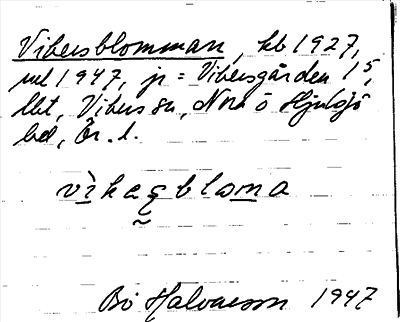 Vibersblomman, kb 1927,
ml 1947, jr = Vibersgården 1⁵,
lht, Vibers sn, Nora o Hjulsjö
bd, Ör. l.
Bo Halvarsson 1947